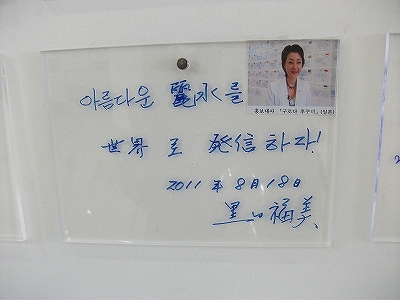 홍보대사 「구로다 후쿠미」(일본)
아름다운 麗水를
世界로 発信하자!
2011年8月18日
黒田福美